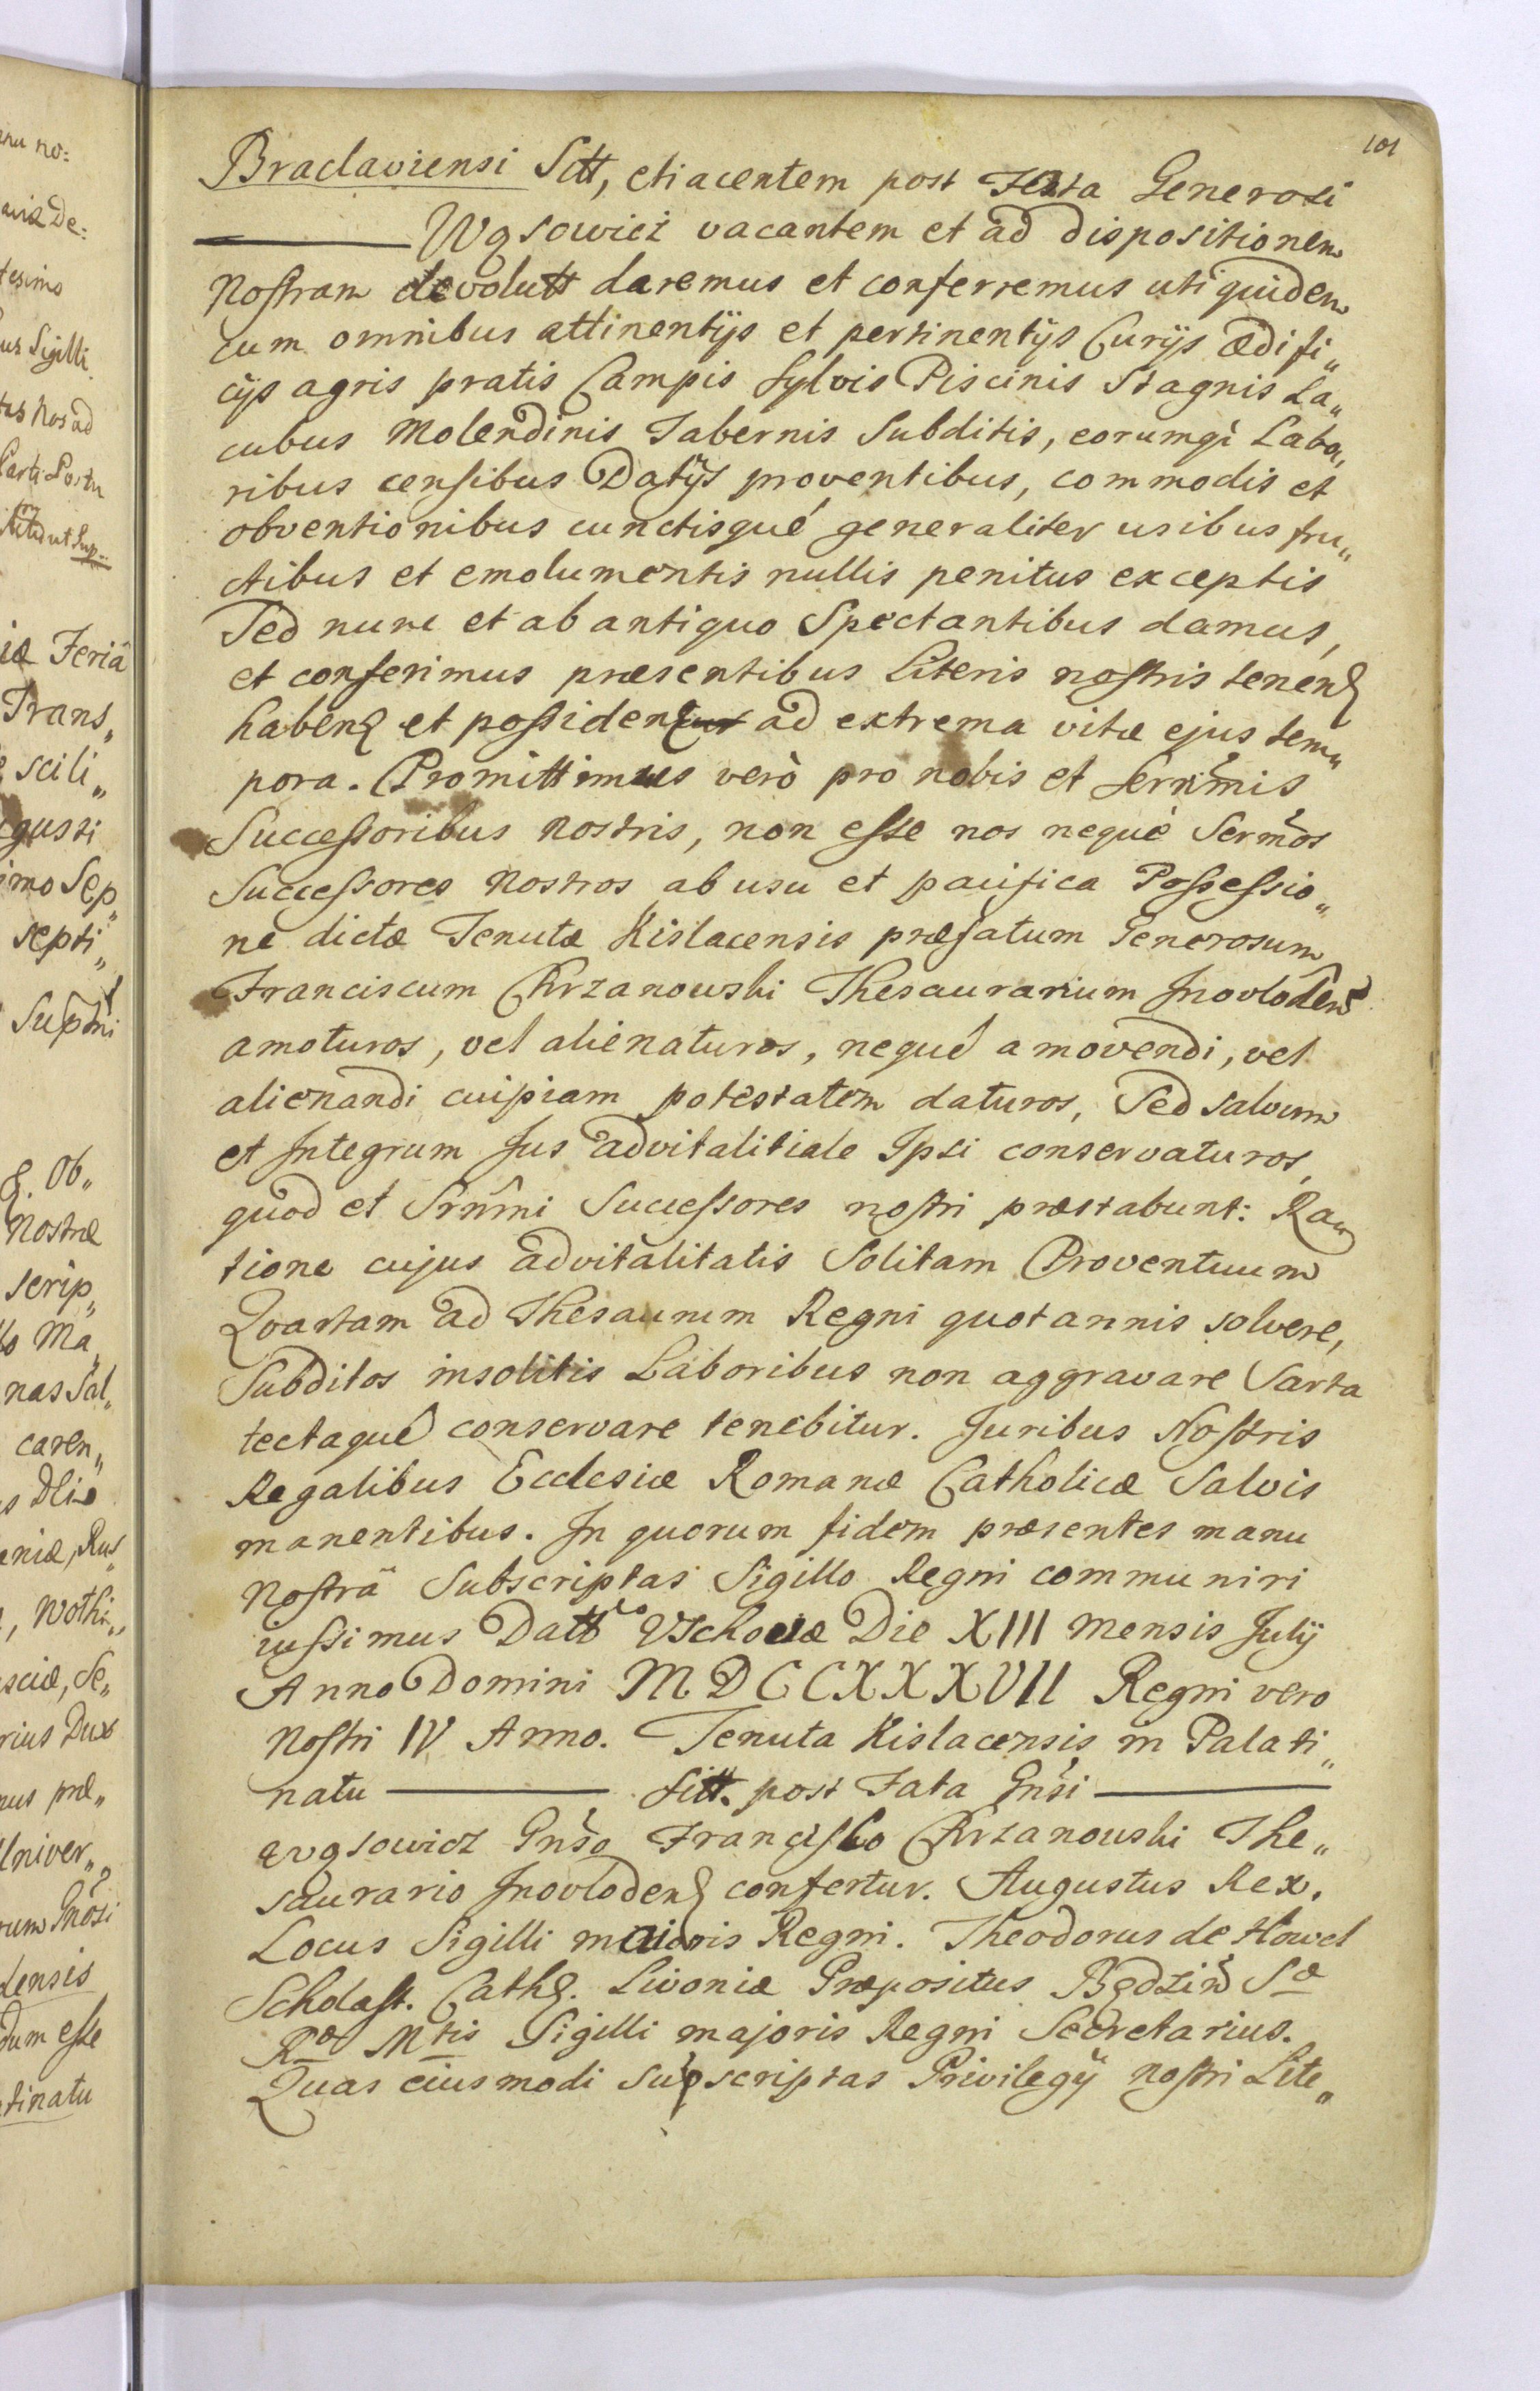 101
Braclaviensi Sitt, et iacentem post Fata Generosi
Wąsowicz vacantem et ad dispositionem
Nostram devolutt daremus et conferremus uti quidem
cum omnibus attinentijs et pertinentijs Curijs ædifi„
cijs agris pratis Campis Sylvis Piscinis Stagnis La„
cubus Molendinis Tabernis Subditis, eorumq; Labo„
ribus censibus Datijs proventibus, commodis et
obventionibus cunctisque generaliter usibus fru„
ctibus et emolumentis nullis penitus exceptis
Sed nunc et ab antiquo Spectantibus damus,
et conferimus præsentibus Literis nostris tenen
haben et possiden ad extrema vitæ ejus tem„
pora. Promittimus verò pro nobis et Sernmis
Successoribus Nostris, non esse nos neque Sermos
Successores Nostros ab usu et pacifica Possessio„
ne dictæ Tenutæ Kislacensis præfatum Generosum
Franciscum Chrzanowski Thesaurarium Inovloden
amoturos, vel alienaturos, neque amovendi, vel
alienandi cuipiam potestatem daturos, Sed salvum
et Integrum Jus advitalitiale Ipsi conservaturos,
quod et Srnmi Successores nostri præstabunt: Ra„
tione cujus advitalitatis Solitam Proventuum
Qvartam ad Thesaurum Regni quotannis solvere,
Subditos insolitis Laboribus non aggravare Sarta
tectaque conservare tenebitur. Juribus Nostris
Regalibus Ecclesiæ Romanæ Catholicæ Salvis
manentibus. In quorum fidem præsentes manu
Nostrâ Subscriptas Sigillo Regni communiri
iussimus Datt Vschovæ Die XIII Mensis Julij
Anno Domini MDCCXXXVII Regni vero
Nostri IV Anno. Tenuta Kislacensis in Palati„
natu Sitt. post Fata Gnsi
Wąsowicz Gnso Francisco Chrzanowski The„
saurario Inovloden confertur. Augustus Rex.
Locus Sigilli maioris Regni. Theodorus de Hówel
Scholast. Cath. Livoniæ Præpositus Będzin Sæ
Ræ Mtis Sigilli majoris Regni Secretarius.
Quas eiusmodi supscriptas Privilegij nostri Lite„